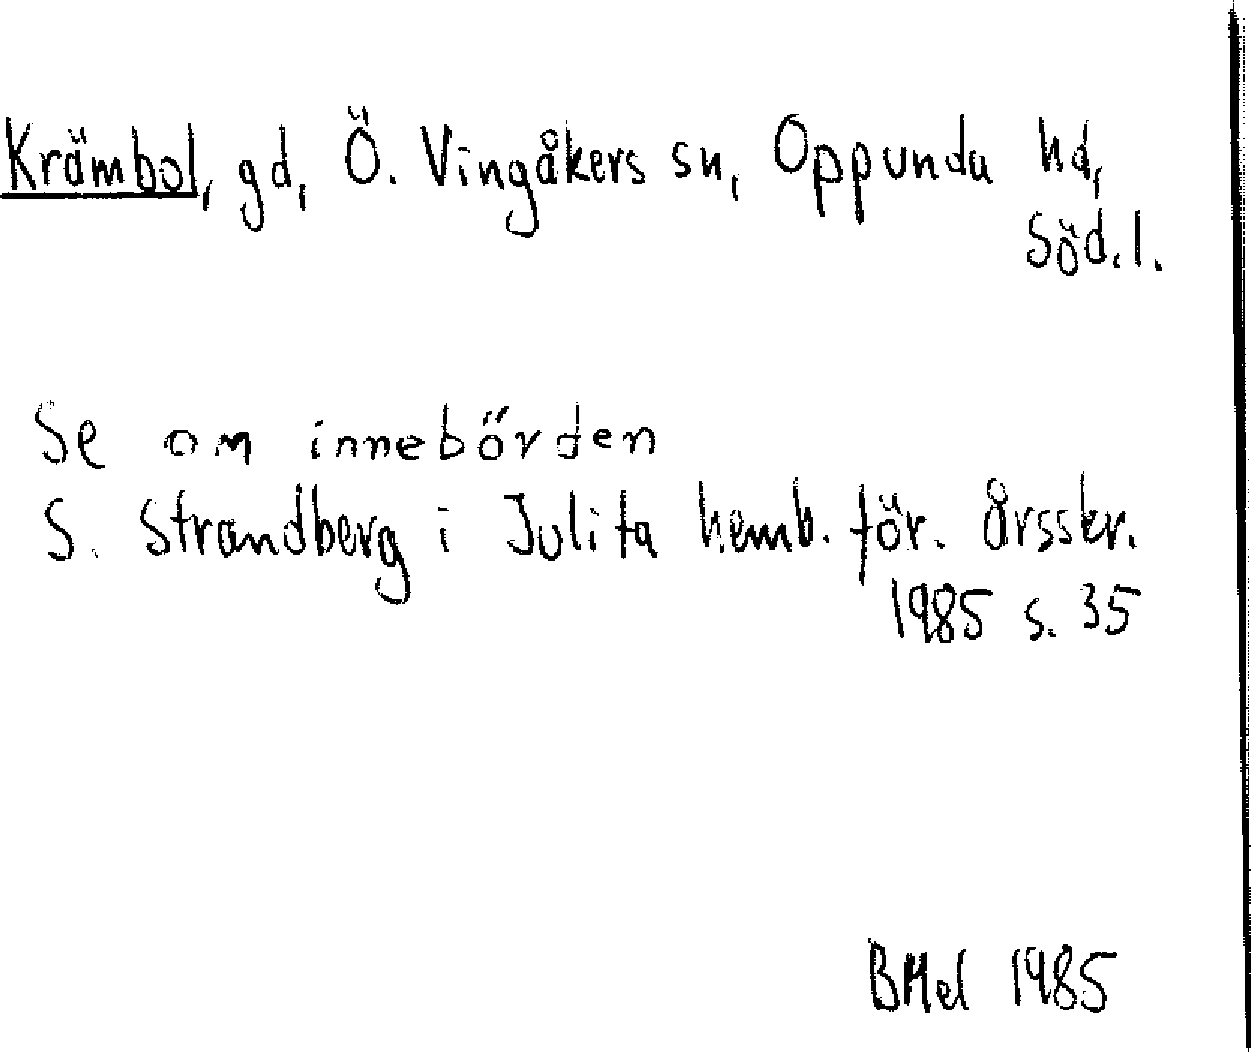 Krämbol, gd, Ö. Vingåkers sn, Oppunda hd,
Söd.l.
Se om innebörden
S. Strandberg i Julita hemb. för. årsskr.
1985 s. 35
BHel 1985